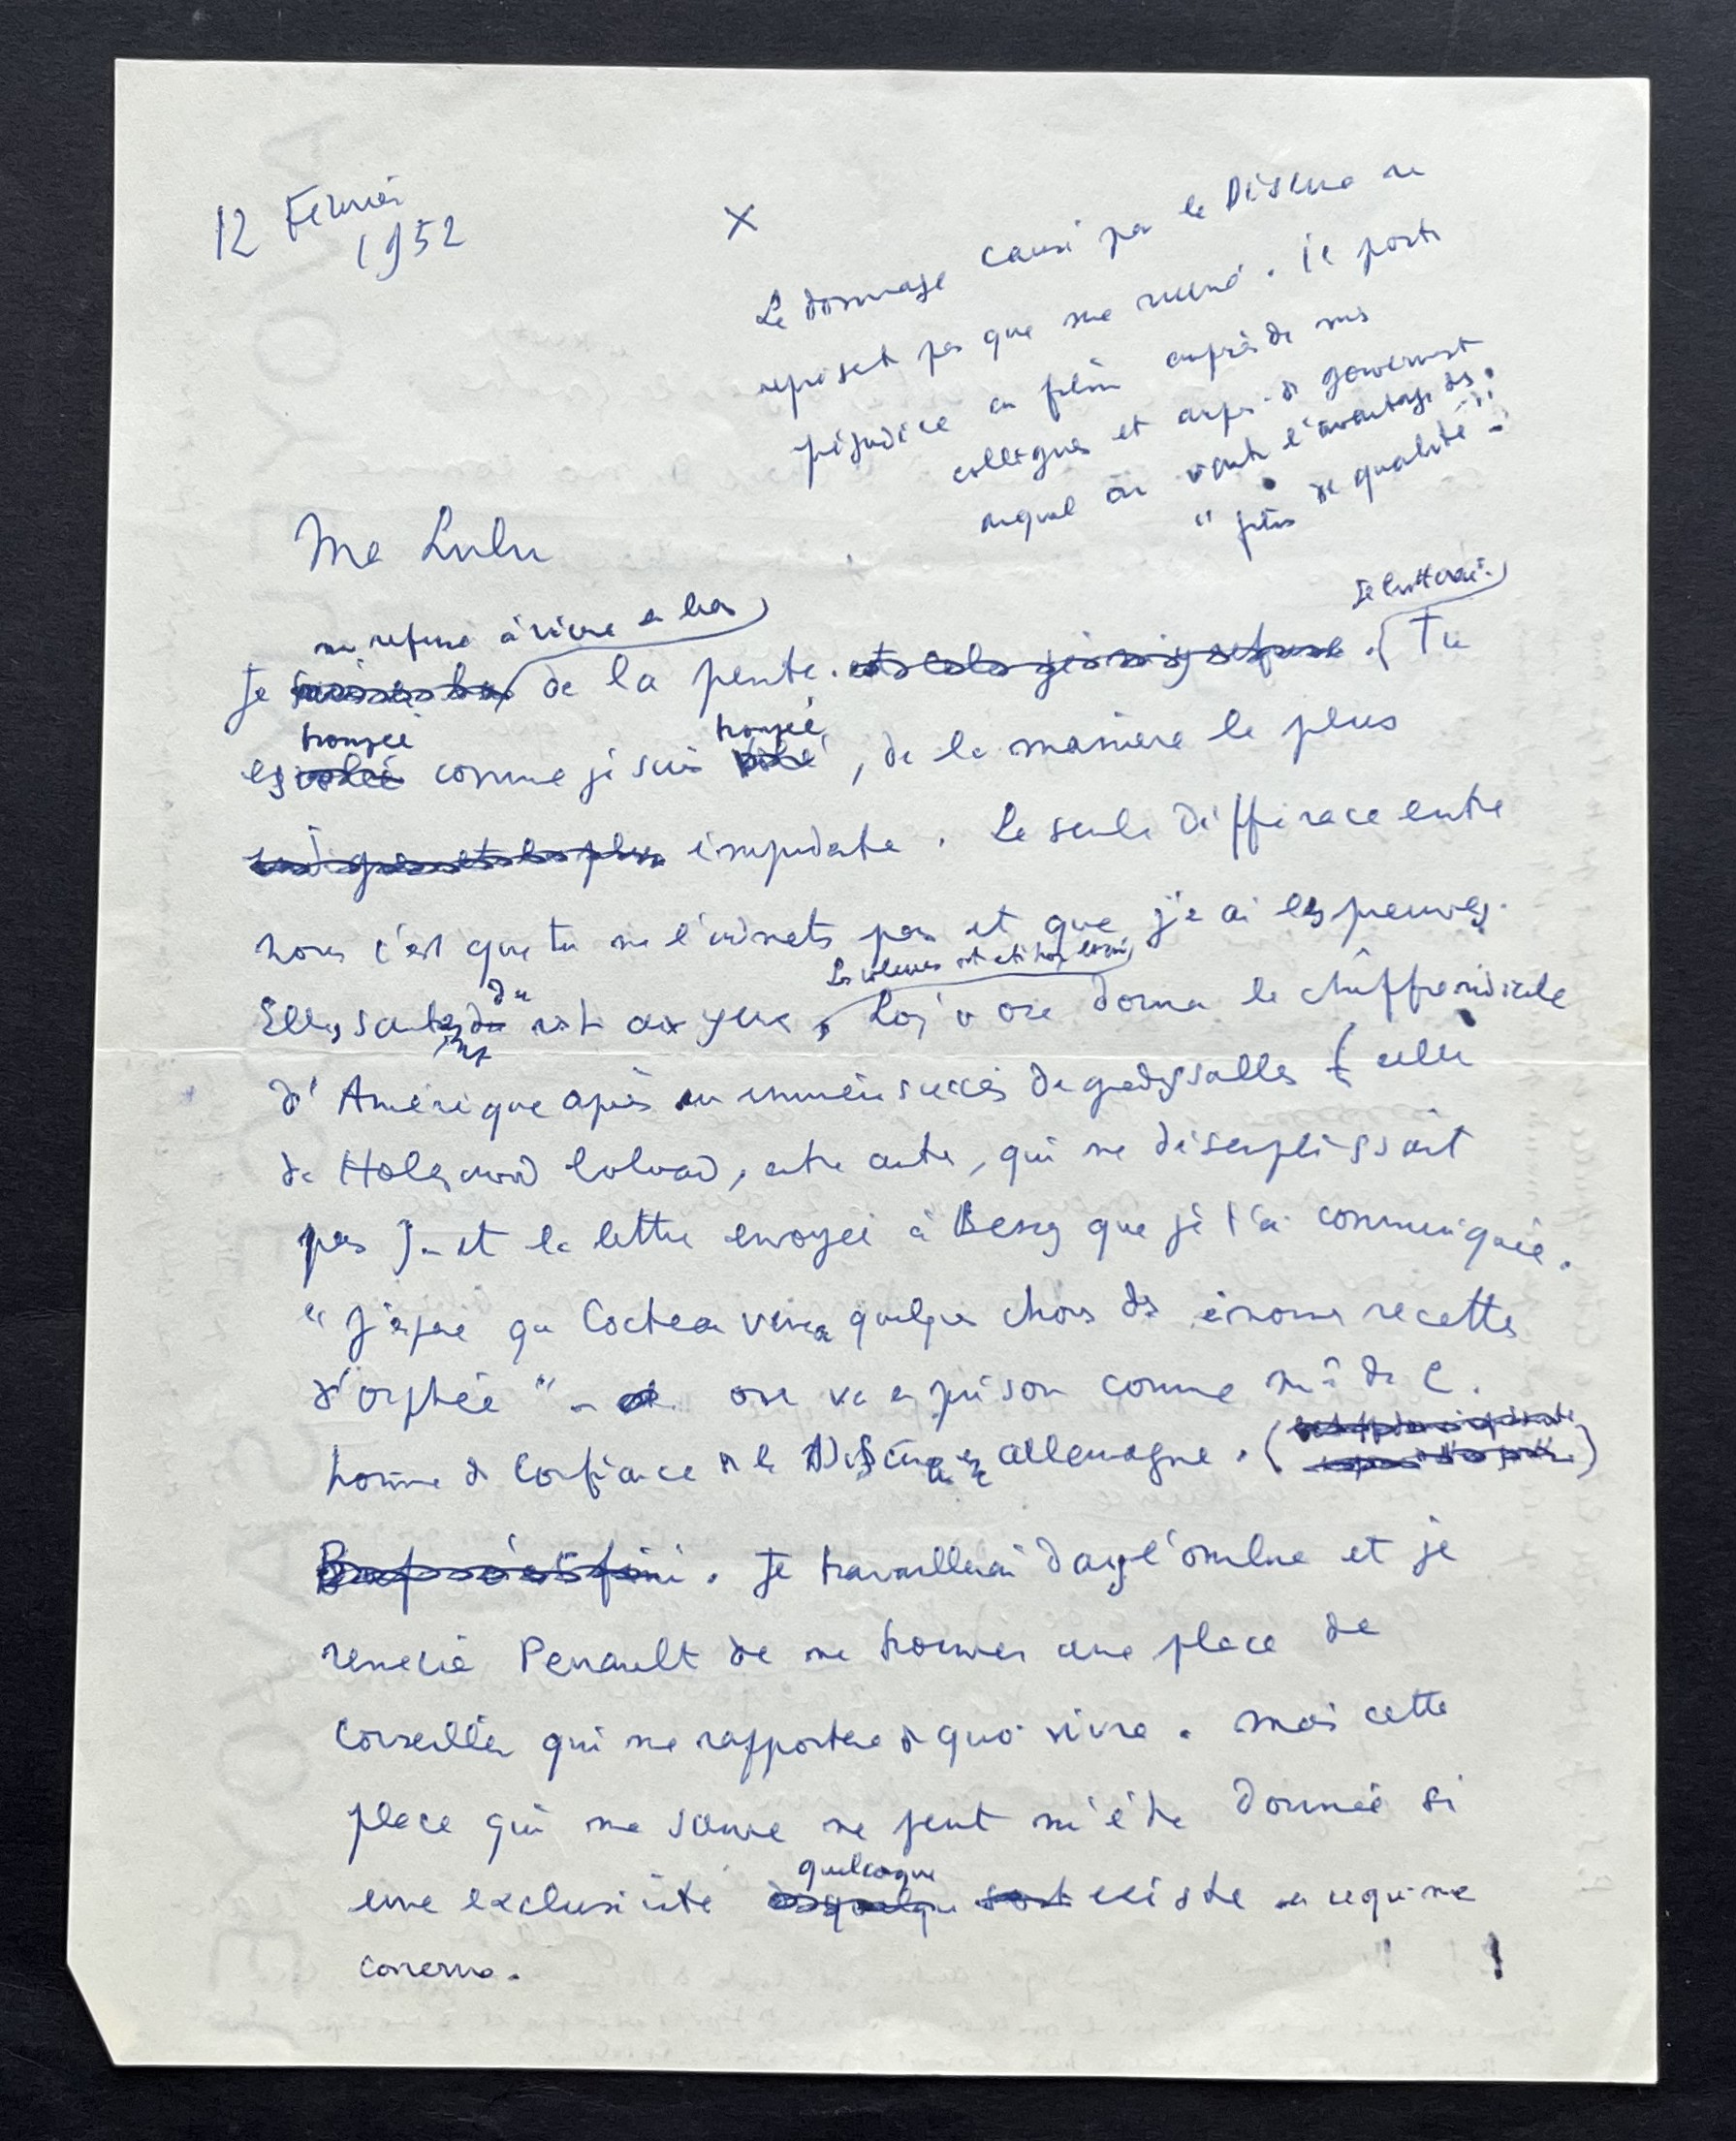 12 Février
1952
X
Le dommage causé par le Discina ne
représente pas que me ruine. Il porte
préjudice au film auprès de mes
collègues et auprès du gouvernement
auquel on vante l'avantage des
"films de qualité"
Ma Lulu
me refuse à vivre en bas
Je lutterai.
Je de la pente. Tu
trompée trompé
es comme je suis , de la manière la plus
impudente. La seule différence entre
nous c'est que tu ne l'admets pas et que j'ai les preuves.
Elles sautent du reste aux yeux, Loi v ose donner le chiffre ridicule
d'Amérique après un immense succès de grandes salles (celle
de Hollywood , entre autre, qui ne désemplissait
pas) - et la lettre envoyée à Bessy que je t'ai communiquée.
"J'espère que Cocteau verra quelque chose des énormes recettes
d'Orphée" - on va en prison comme Mr de C.
homme de confiance de la Discina en allemagne.
Je travaillerai dans l'ombre et je
remercie Perrault de me trouver une place de
Conseiller qui me rapportera de quoi vivre. Mais cette
place qui me sauve ne peut m'être donnée si
quelconque
une exclusivité existe en ce qui me
concerne.